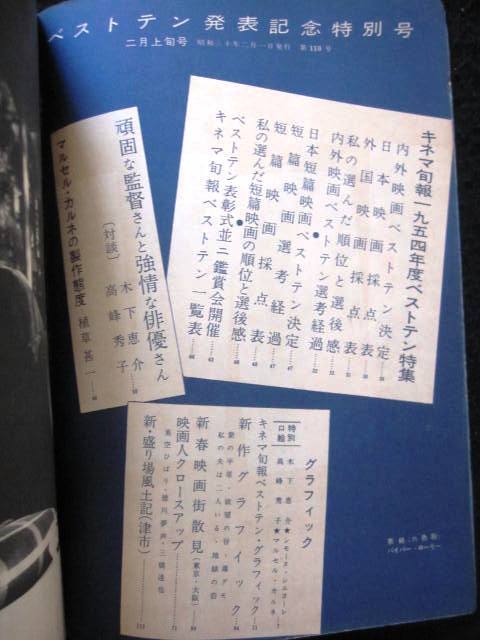 ベストテン発表記念特別号
二月上旬号 昭和三十年二月一日発行 第110号
キネマ旬報一九五四年度ベストテン特集
内外映画ベストテン決定
日本映画採点表
外国映画採点表
私の選んだ順位と選後感
内外映画ベストテン選考経過
日本短篇映画ベストテン決定
短篇映画選考経過
短篇映画採点表
私の選んだ短篇映画の順位と選後感
ベストテン表彰式並ニ鑑賞会開催
キネマ旬報ベストテン一覧表
頑固な監督さんと強情な俳優さん
〔対談〕木下恵介
高峰秀子
マルセル・カルネの製作態度 植草甚一
グラフィック
特別口絵 木下恵介★シモーヌ・シニョーレ
高峰秀子★マルセル・カルネ
キネマ旬報ベストテン・グラフィック
新作グラフィック
私の夫は二人いる・地獄の
新春映画街散見(東京・大阪)
映画人クローズアップ
美空ひばり・徳川夢声・三橋達也
新・盛り場風土記(津市)
表紙
パイパー・ローリー